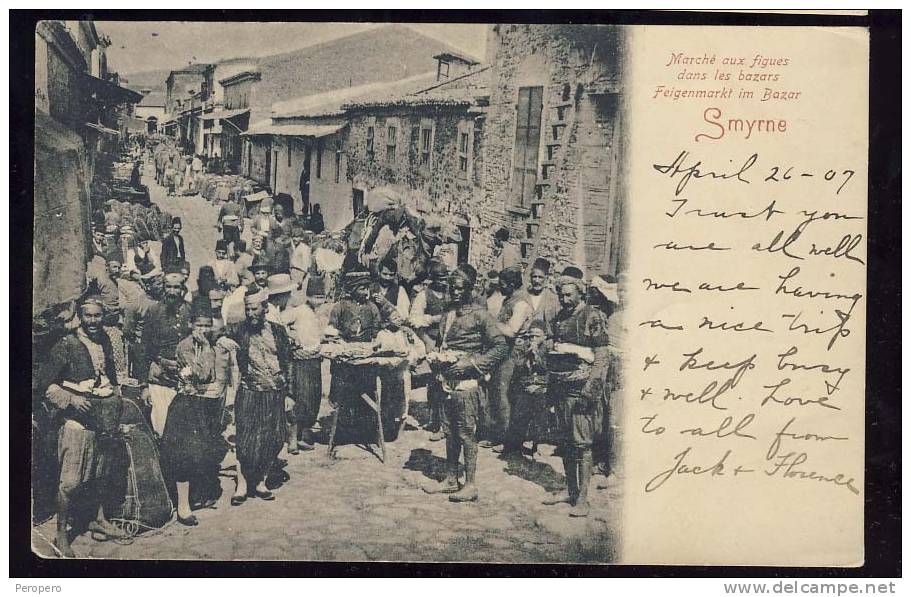 Marché aux figues
dans les bazars
Feigenmarkt im Bazar
Smyrne
April 26-07
Trust you
are all well
we are having
a nice trip
& keep busy
& well. Love
to all from
Jack & Florence
Peropero
www.delcampe.net